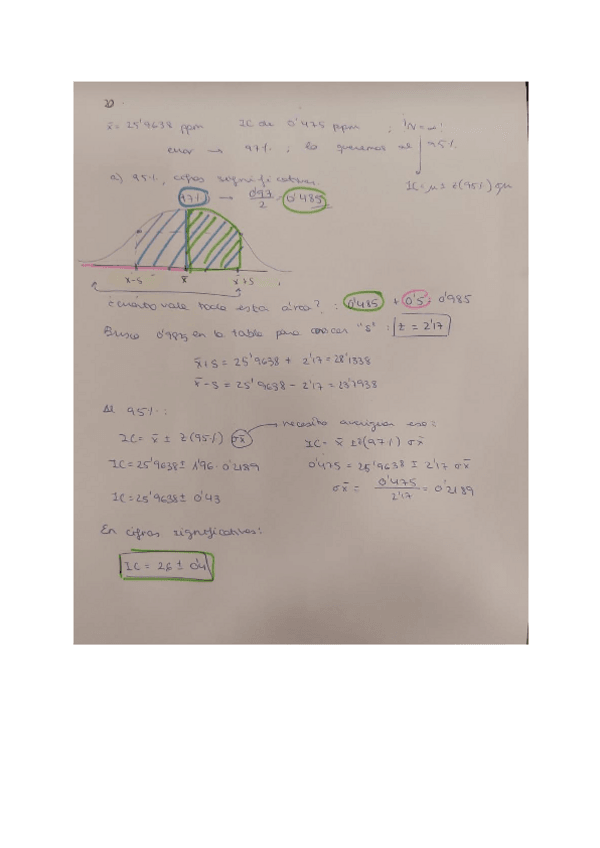 x̄ = 25'9638 ppm IC de 0'475 ppm ; N = ∞
error → 97% ; lo queremos al 95%.
a) 95%, cifras significativas. IC = μ ± z(95%) σμ
97% → 0'97/2 = 0'485
x̄-s x̄ x̄+s
¿cuánto vale toda esta área? : 0'485 + 0'5 = 0'985
Busco 0'985 en la tabla para conocer "s" : z = 2'17
x̄+s = 25'9638 + 2'17 = 28'1338
x̄-s = 25'9638 - 2'17 = 23'7938
Al 95% :
necesito averiguar eso:
IC = x̄ ± z(95%) σx̄ IC = x̄ ± z(97%) σx̄
IC = 25'9638 ± 1'96 · 0'2189 0'475 = 25'9638 ± 2'17 σx̄
σx̄ = 0'475/2'17 = 0'2189
IC = 25'9638 ± 0'43
En cifras significativas:
IC = 26 ± 0'4